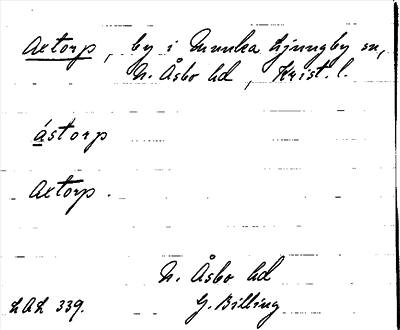 Axtorp, by i Munka Ljungby sn,
N. Åsbo hd, Krist. l.
ástorp
Axtorp.
N. Åsbo hd
LAL 339. G. Billing